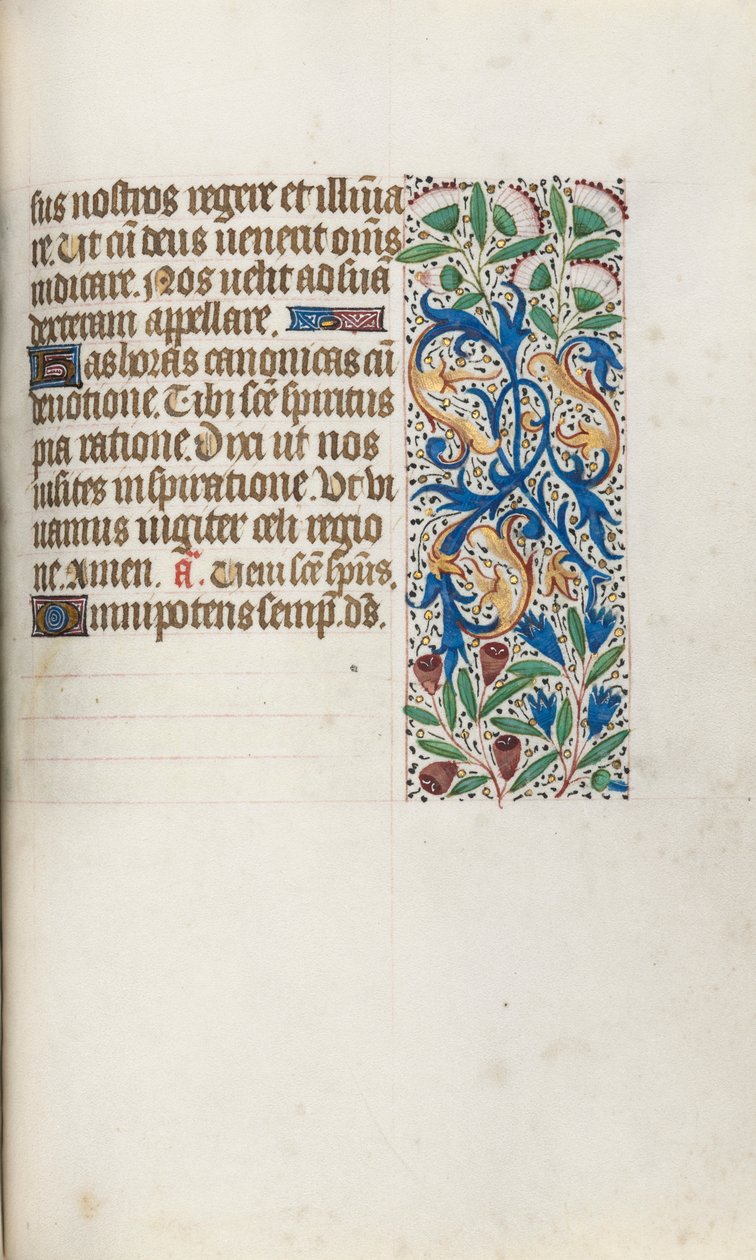 sus nostros regere et illūīa
re. Ut cū deus uenerit om̄s
iudicare. Nos uelit ad suā
dexteram appellare.
Has horas canonicas cū
deuotione. Tibi scē spiritus
pia ratione. Dixi ut nos
uisites inspiratione. Ut vi
uamus iugiter celi regio
ne. Amen. an̄. Ueni scē sp̄us.
Omnipotens semp̄. ds̄.